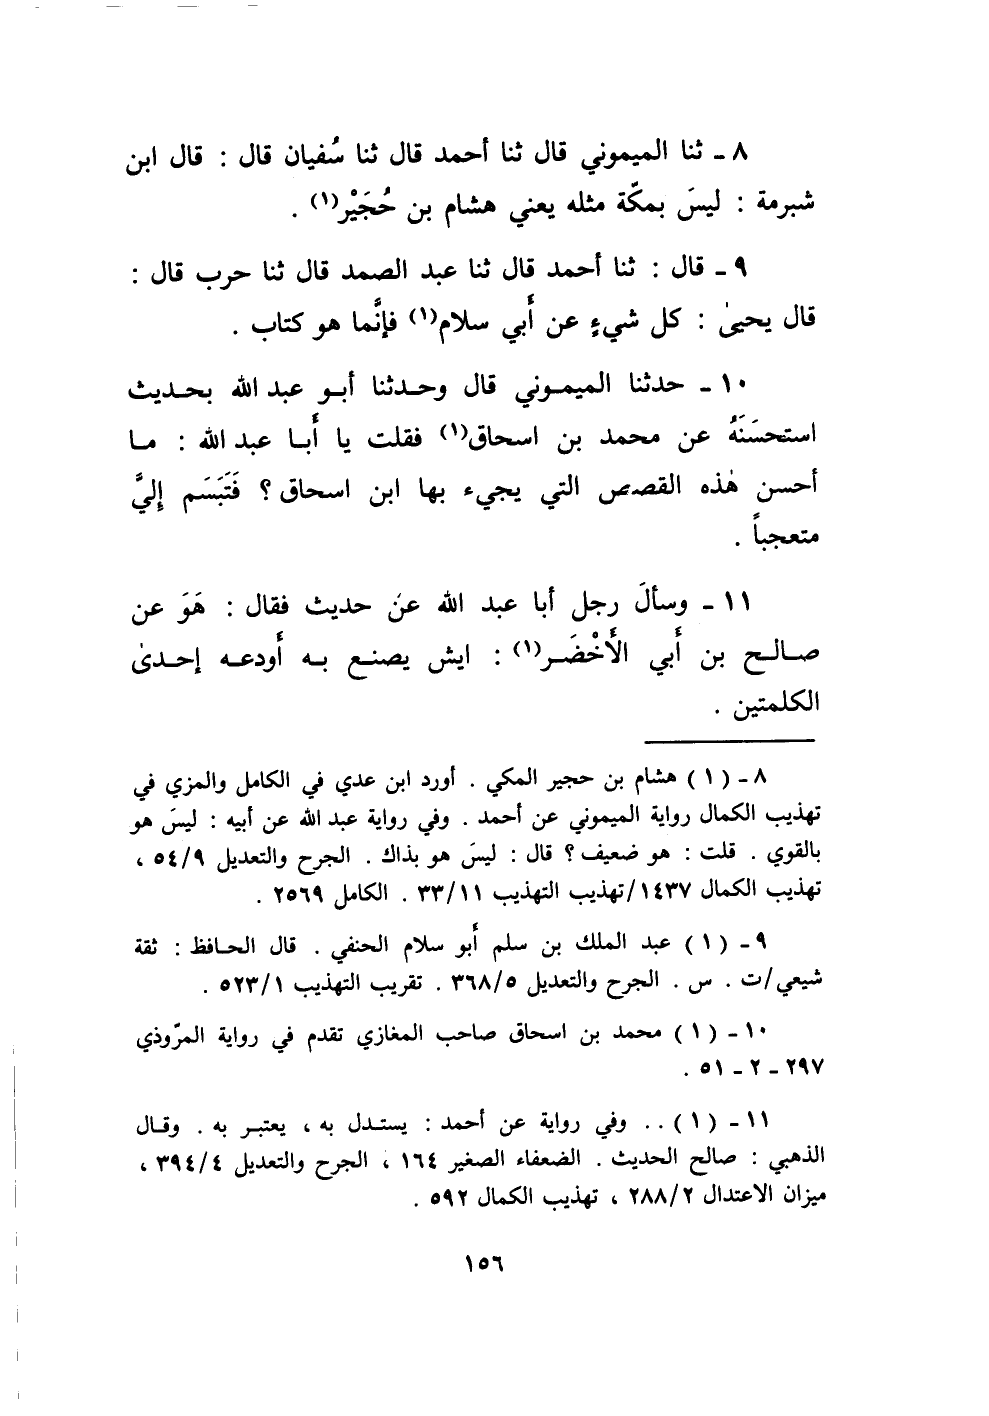 ٨ ـ ثنا الميموني قال ثنا أحمد قال ثنا سُفيان قال : قال ابن
شبرمة : ليسَ بمكّة مثله يعني هشام بن حُجَيْر(١) .
٩ ـ قال : ثنا أحمد قال ثنا عبد الصمد قال ثنا حرب قال :
قال يحيىٰ : كل شيءٍ عن أَبي سلام(١) فإنَّما هو كتاب .
١٠ ـ حدثنا الميموني قال وحدثنا أبو عبد الله بحديث
استحسَنَهُ عن محمد بن اسحاق(١) فقلت يا أَبا عبد الله : ما
أحسن هٰذه القصص التي يجيء بها ابن اسحاق ؟ فَتَبَسَم إليَّ
متعجباً .
١١ ـ وسألَ رجل أبا عبد الله عن حديث فقال : هَوَ عن
صالح بن أَبي الأَخْضَر(١) : ايش يصنع به أَودعه إحدىٰ
الكلمتين .
٨ ـ (١) هشام بن حجير المكي . أورد ابن عدي في الكامل والمزي في
تهذيب الكمال رواية الميموني عن أحمد . وفي رواية عبد الله عن أبيه : ليسَ هو
بالقوي . قلت : هو ضعيف ؟ قال : ليسَ هو بذاك . الجرح والتعديل ٥٤/٩ ،
تهذيب الكمال ١٤٣٧/تهذيب التهذيب ٣٣/١١ . الكامل ٢٥٦٩ .
٩ ـ (١) عبد الملك بن سلم أَبو سلام الحنفي . قال الحافظ : ثقة
شيعي/ت . س . الجرح والتعديل ٣٦٨/٥ . تقريب التهذيب ٥٢٣/١ .
١٠ ـ (١) محمد بن اسحاق صاحب المغازي تقدم في رواية المرّوذي
٢٩٧ ـ ٢ ـ ٥١ .
١١ ـ (١) .. وفي رواية عن أحمد : يستدل به ، يعتبر به . وقال
الذهبي : صالح الحديث . الضعفاء الصغير ١٦٤ ، الجرح والتعديل ٣٩٤/٤ ،
ميزان الاعتدال ٢٨٨/٢ ، تهذيب الكمال ٥٩٢ .
١٥٦